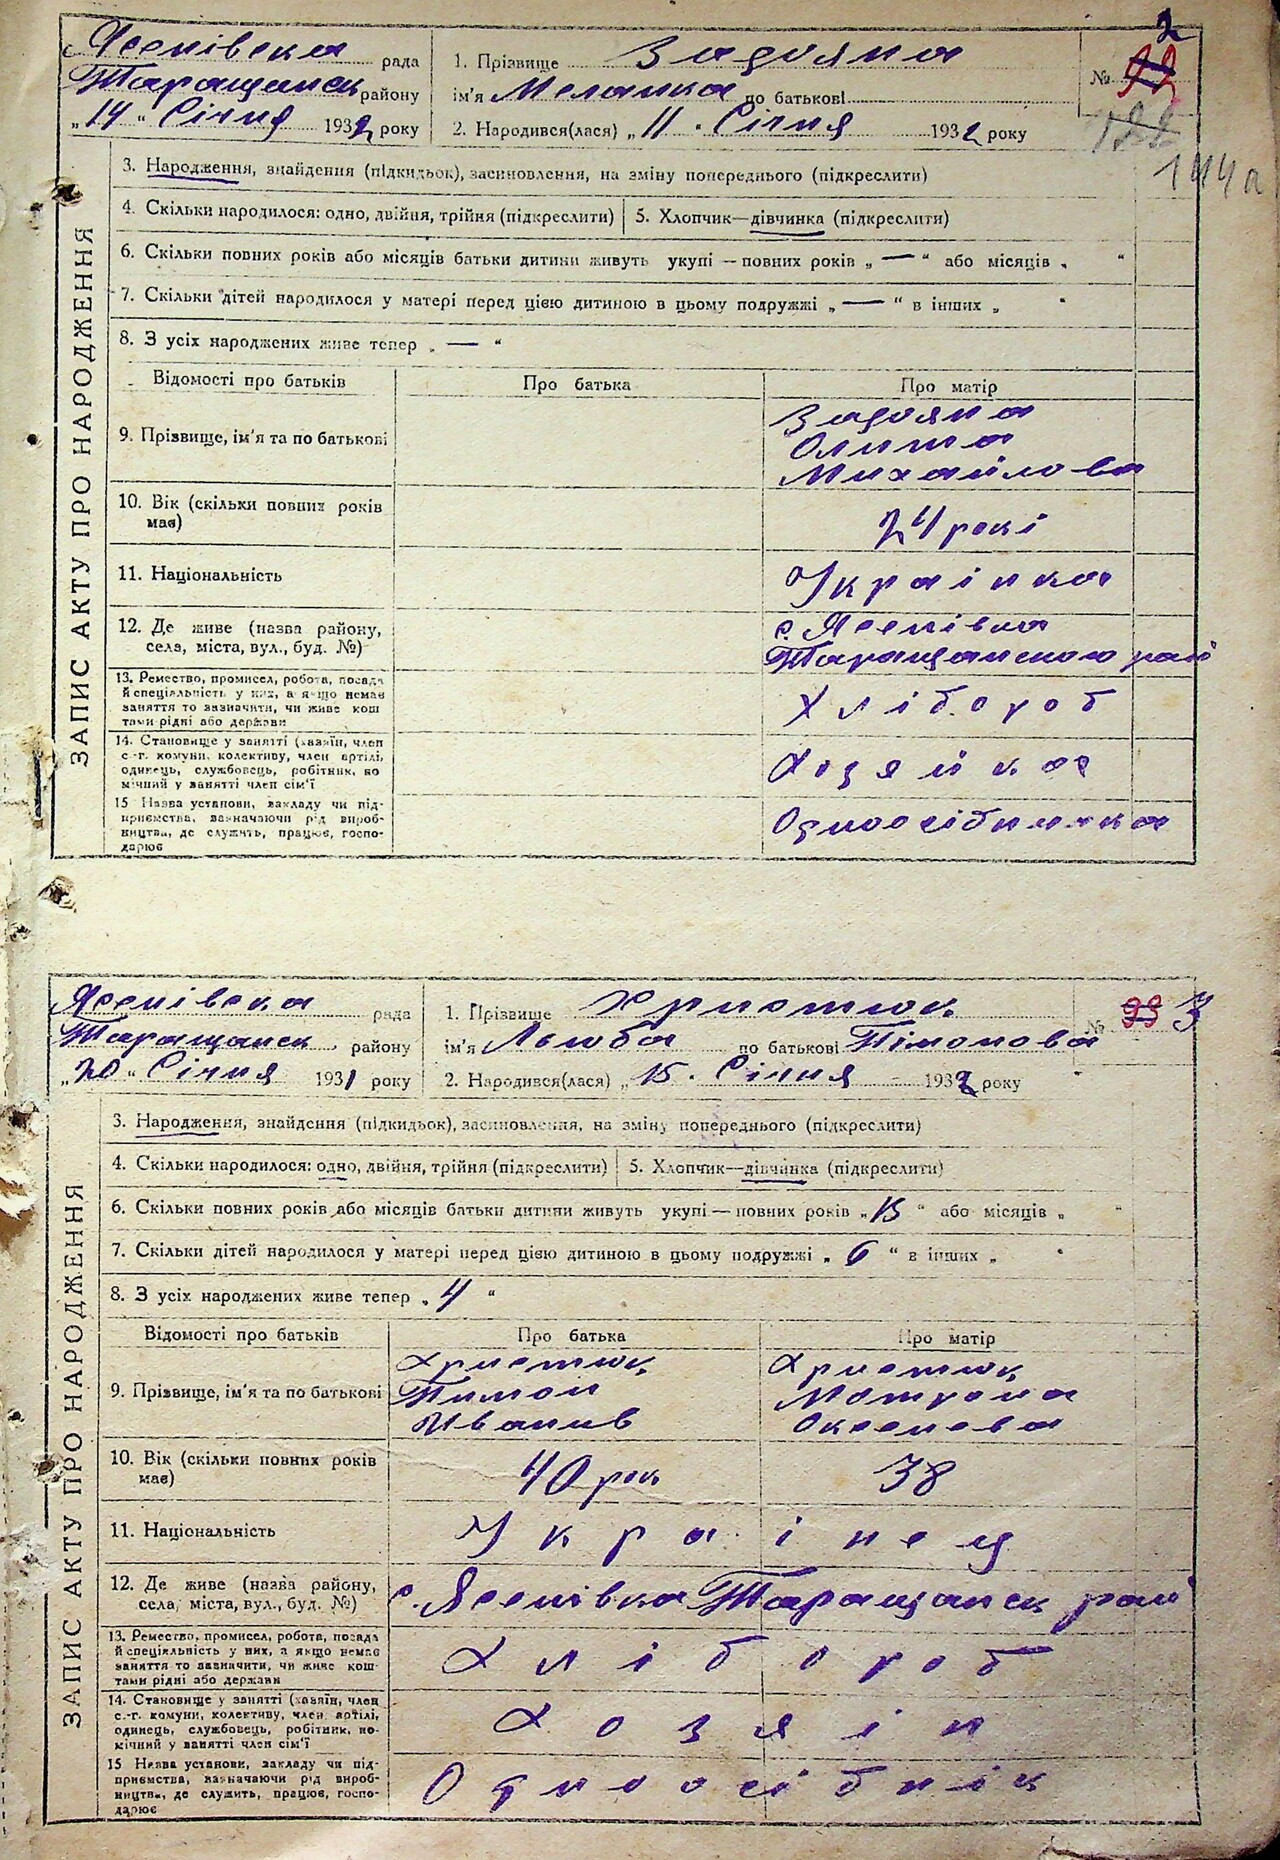 2
Ясенівска рада
Таращанск району
„14“ Січня 1932 року
1. Прізвище Задояна
ім'я Меланка по батькові
2. Народився(лася) „11. Січня 1932 року
№ 92
122
144а
ЗАПИС АКТУ ПРО НАРОДЖЕННЯ
3. Народження, знайдення (підкидьок), засиновлення, на зміну попереднього (підкреслити)
4. Скільки народилося: одно, двійня, трійня (підкреслити) 5. Хлопчик—дівчинка (підкреслити)
6. Скільки повних років або місяців батьки дитини живуть укупі — повних років „ — “ або місяців „ “
7. Скільки дітей народилося у матері перед цією дитиною в цьому подружжі „ — “ в інших „ “
8. З усіх народжених живе тепер „ — “
Відомості про батьків Про батька Про матір
9. Прізвище, ім'я та по батькові
Задояна
Олита
Михайлова
10. Вік (скільки повних років має)
24 рокі
11. Національність
Украінка
12. Де живе (назва району, села, міста, вул., буд. №)
с. Ясенівка
Таращанского рай
13. Ремество, промисел, робота, посада
й спеціяльність у них, а якщо немає
заняття то зазначити, чи живе кош
тами рідні або держави
Хлібороб
14. Становище у занятті (хазяїн, член
с.-г. комуни, колективу, член артілі,
одинець, службовець, робітник, по
мічний у занятті член сім'ї
Хозяйка
15 Назва установи, закладу чи під-
приємства, зазначаючи рід вироб-
ництва, де служить, працює, госпо-
дарює
Одноосібничка
Ясенівска рада
Таращанск району
„20“ Січня 1931 року
1. Прізвище Христюк
ім'я Люба по батькові Тімонова
2. Народився(лася) „15. Січня 1932 року
№ 93 3
ЗАПИС АКТУ ПРО НАРОДЖЕННЯ
3. Народження, знайдення (підкидьок), засиновлення, на зміну попереднього (підкреслити)
4. Скільки народилося: одно, двійня, трійня (підкреслити) 5. Хлопчик—дівчинка (підкреслити)
6. Скільки повних років або місяців батьки дитини живуть укупі — повних років „15“ або місяців „ “
7. Скільки дітей народилося у матері перед цією дитиною в цьому подружжі „6“ в інших „ “
8. З усіх народжених живе тепер „4“
Відомості про батьків Про батька Про матір
9. Прізвище, ім'я та по батькові
Христюк Христюк
Тимон Мотрона
Иванив Оксенева
10. Вік (скільки повних років має)
40 рок 38
11. Національність
Украінец
12. Де живе (назва району, села, міста, вул., буд. №)
с. Ясенівка Таращанск рай
13. Ремество, промисел, робота, посада
й спеціяльність у них, а якщо немає
заняття то зазначити, чи живе кош
тами рідні або держави
Хлібороб
14. Становище у занятті (хазяїн, член
с.-г. комуни, колективу, член артілі,
одинець, службовець, робітник, по-
мічний у занятті член сім'ї
Хозяін
15 Назва установи, закладу чи під-
приємства, зазначаючи рід вироб-
ництва, де служить, працює, госпо-
дарює
Одноосібнік